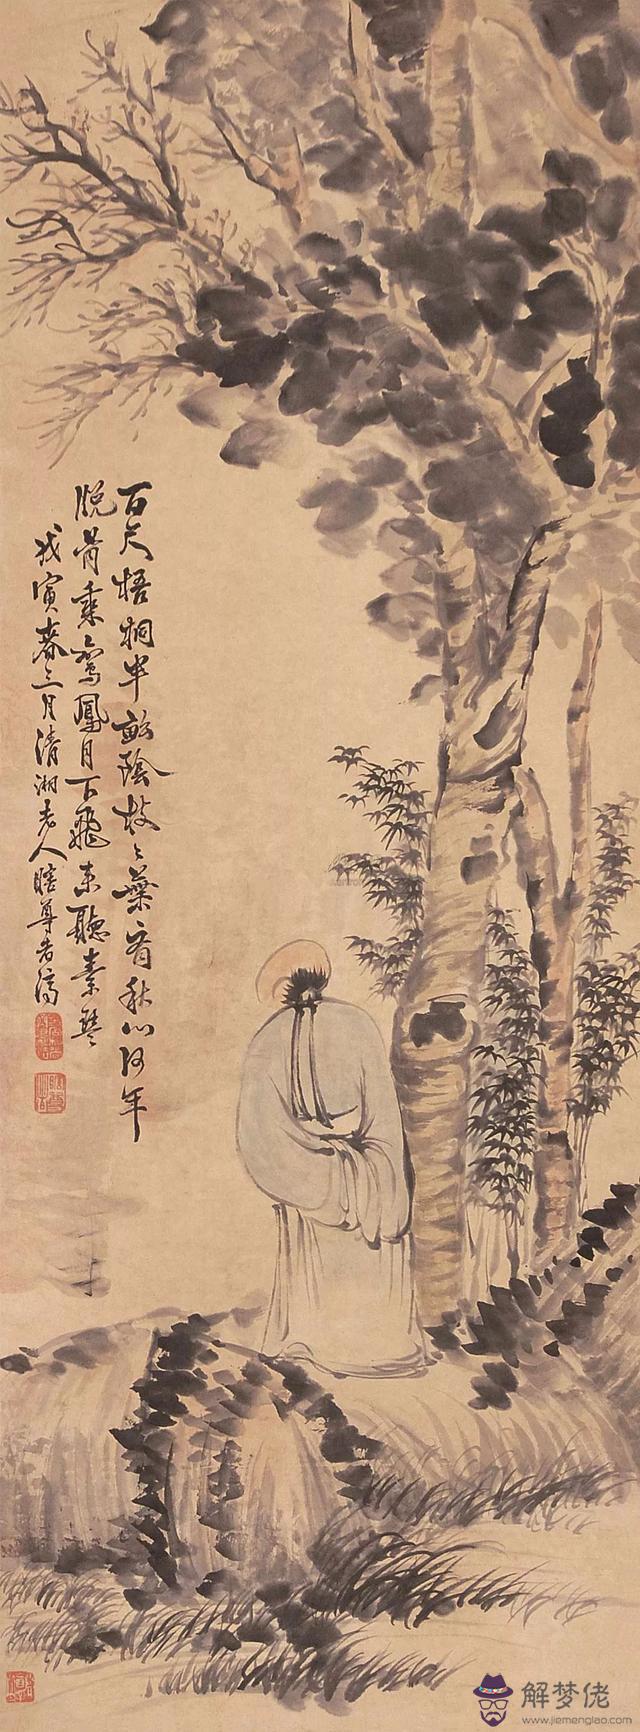 百尺梧桐半畝陰枝〻葉〻有秋心何年
脫骨乘鸞鳳月下飛來聽素琴
戊寅春三月清湘老人瞎尊者濟
解梦佬
www.jiemenglao.com